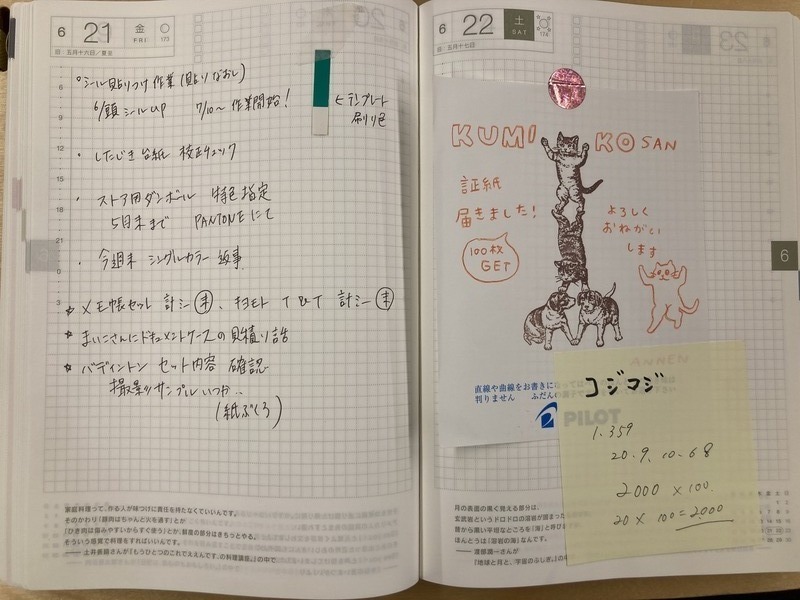 6 21 金 FRI 173
旧 五月十六日／夏至
シール貼りつけ作業(貼りなおし)
6/頭 シールUP 7/10〜 作業開始!
テンプレート
刷り色
・したじき台紙 校正チェック
・ストア用ダンボール 特色指定
5日末まで PANTONEにて
・今週末 シングルカラー 返事
☆メモ帳セット 計シー 未、
計シー 未
☆まいこさんにドキュメントケースの見積り話
☆パディントン セット内容 確認
撮影サンプルいつか..
(紙ぶくろ)
6
9
12
15
18
21
0
3
家庭料理って、作る人が味つけに責任を持たなくていいんです。
そのかわり「豚肉はちゃんと火を通す」とか
「ひき肉は傷みやすいからすぐ使う」とか、部屋の部分はきちっとやる。
そういう感覚で料理をすればいいんです。
── 土井善晴さんが『もうひとつのこれでええんです。の料理講座。』の中で
6 22 土 SAT 174
旧 五月十七日
KUMI KOSAN
証紙
届きました!
100枚
GET
よろしく
おねがい
します
6
直線や曲線をお書きに
判りません ふだんの
PILOT
コジマジ
1.359
20.9.10-68
2000 ×100.
20 × 100=2000
月の表面の黒く見える部分は、
玄武岩というドロドロの溶岩が固まった
昔から黒い平坦なところを「海」と呼び
ほんとうは「溶岩の海」なんです。
── 渡部潤一さんが
『地球と月と、宇宙のふしぎ。』の